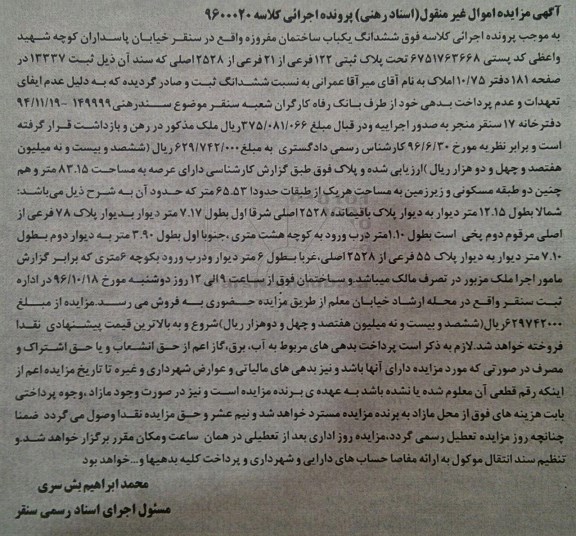 آگهی مزایده اموال غیر منقول(اسناد رهنی) پرونده اجرائی کلاسه ۹۶۰۰۰۲۰
به موجب پرونده اجرائی کلاسه فوق ششدانگ یکباب ساختمان مفروزه واقع در سنقر خیابان پاسداران کوچه شهید
واعظی کد پستی ۶۷۵۱۷۶۳۶۶۸ تحت پلاک ثبتی ۱۲۲ فرعی از ۲۱ فرعی از ۲۵۲۸ اصلی که سند آن ذیل ثبت ۱۳۳۳۷ در
صفحه ۱۸۱ دفتر ۱۰/۷۵ املاک به نام آقای میرآقا عمرانی به نسبت ششدانگ ثبت و صادر گردیده که به دلیل عدم ایفای
تعهدات و عدم پرداخت بدهی خود از طرف بانک رفاه کارگران شعبه سنقر موضوع سندرهنی ۱۴۹۹۹۹ -۹۴/۱۱/۱۹
دفترخانه ۱۷ سنقر منجر به صدور اجراییه ودر قبال مبلغ ۳۷۵/۰۸۱/۰۶۶ ریال ملک مذکور در رهن و بازداشت قرار گرفته
است و برابر نظریه مورخ ۹۶/۶/۳۰ کارشناس رسمی دادگستری به مبلغ ۶۲۹/۷۴۲/۰۰۰ ریال (ششصد و بیست و نه میلیون
هفتصد و چهل و دو هزار ریال )ارزیابی شده و پلاک فوق طبق گزارش کارشناسی دارای عرصه به مساحت ۸۳.۱۵ متر و هم
چنین دو طبقه مسکونی و زیرزمین به مساحت هریک از طبقات حدودا ۶۵.۵۳ متر که حدود آن به شرح ذیل می‌باشد:
شمالا بطول ۱۲.۱۵ متر دیوار به دیوار پلاک باقیمانده ۲۵۲۸ اصلی شرقا اول بطول ۷.۱۷ متر دیوار بدیوار پلاک ۷۸ فرعی از
اصلی مرقوم دوم پخی است بطول ۱.۱۰متر درب ورود به کوچه هشت متری ،جنوبا اول بطول ۳.۹۰ متر به دیوار دوم بطول
۷.۱۰ متر دیوار به دیوار پلاک ۵۵ فرعی از ۲۵۲۸ اصلی،غربا بطول ۶ متر دیوار ودرب ورود بکوچه ۶متری که برابر گزارش
مامور اجرا ملک مزبور در تصرف مالک میباشد و ساختمان فوق از ساعت ۹الی ۱۲ روز دوشنبه مورخ ۹۶/۱۰/۱۸ در اداره
ثبت سنقر واقع در محله ارشاد خیابان معلم از طریق مزایده حضوری به فروش می رسد.مزایده از مبلغ
۶۲۹۷۴۲۰۰۰ریال(ششصد و بیست و نه میلیون هفتصد و چهل و دوهزار ریال)شروع و به بالاترین قیمت پیشنهادی نقدا
فروخته خواهد شد.لازم به ذکر است پرداخت بدهی های مربوط به آب، برق،گاز اعم از حق انشعاب و یا حق اشتراک و
مصرف در صورتی که مورد مزایده دارای آنها باشد و نیز بدهی های مالیاتی و عوارض شهرداری و غیره تا تاریخ مزایده اعم از
اینکه رقم قطعی آن معلوم شده یا نشده باشد به عهده ی برنده مزایده است و نیز در صورت وجود مازاد ،وجوه پرداختی
بابت هزینه های فوق از محل مازاد به برنده مزایده مسترد خواهد شد و نیم عشر و حق مزایده نقدا وصول می گردد ضمنا
چنانچه روز مزایده تعطیل رسمی گردد،مزایده روز اداری بعد از تعطیلی در همان ساعت ومکان مقرر برگزار خواهد شد.و
تنظیم سند انتقال موکول به ارائه مفاصا حساب های دارایی و شهرداری و پرداخت کلیه بدهیها و...خواهد بود
محمد ابراهیم بش سری
مسئول اجرای اسناد رسمی سنقر